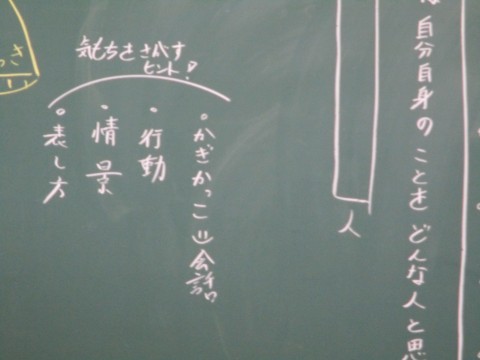 自分自身のことをどんな人と思
人
気もちをさがす
ヒント!
・かぎかっこ=会話
・行動
・情景
・表し方